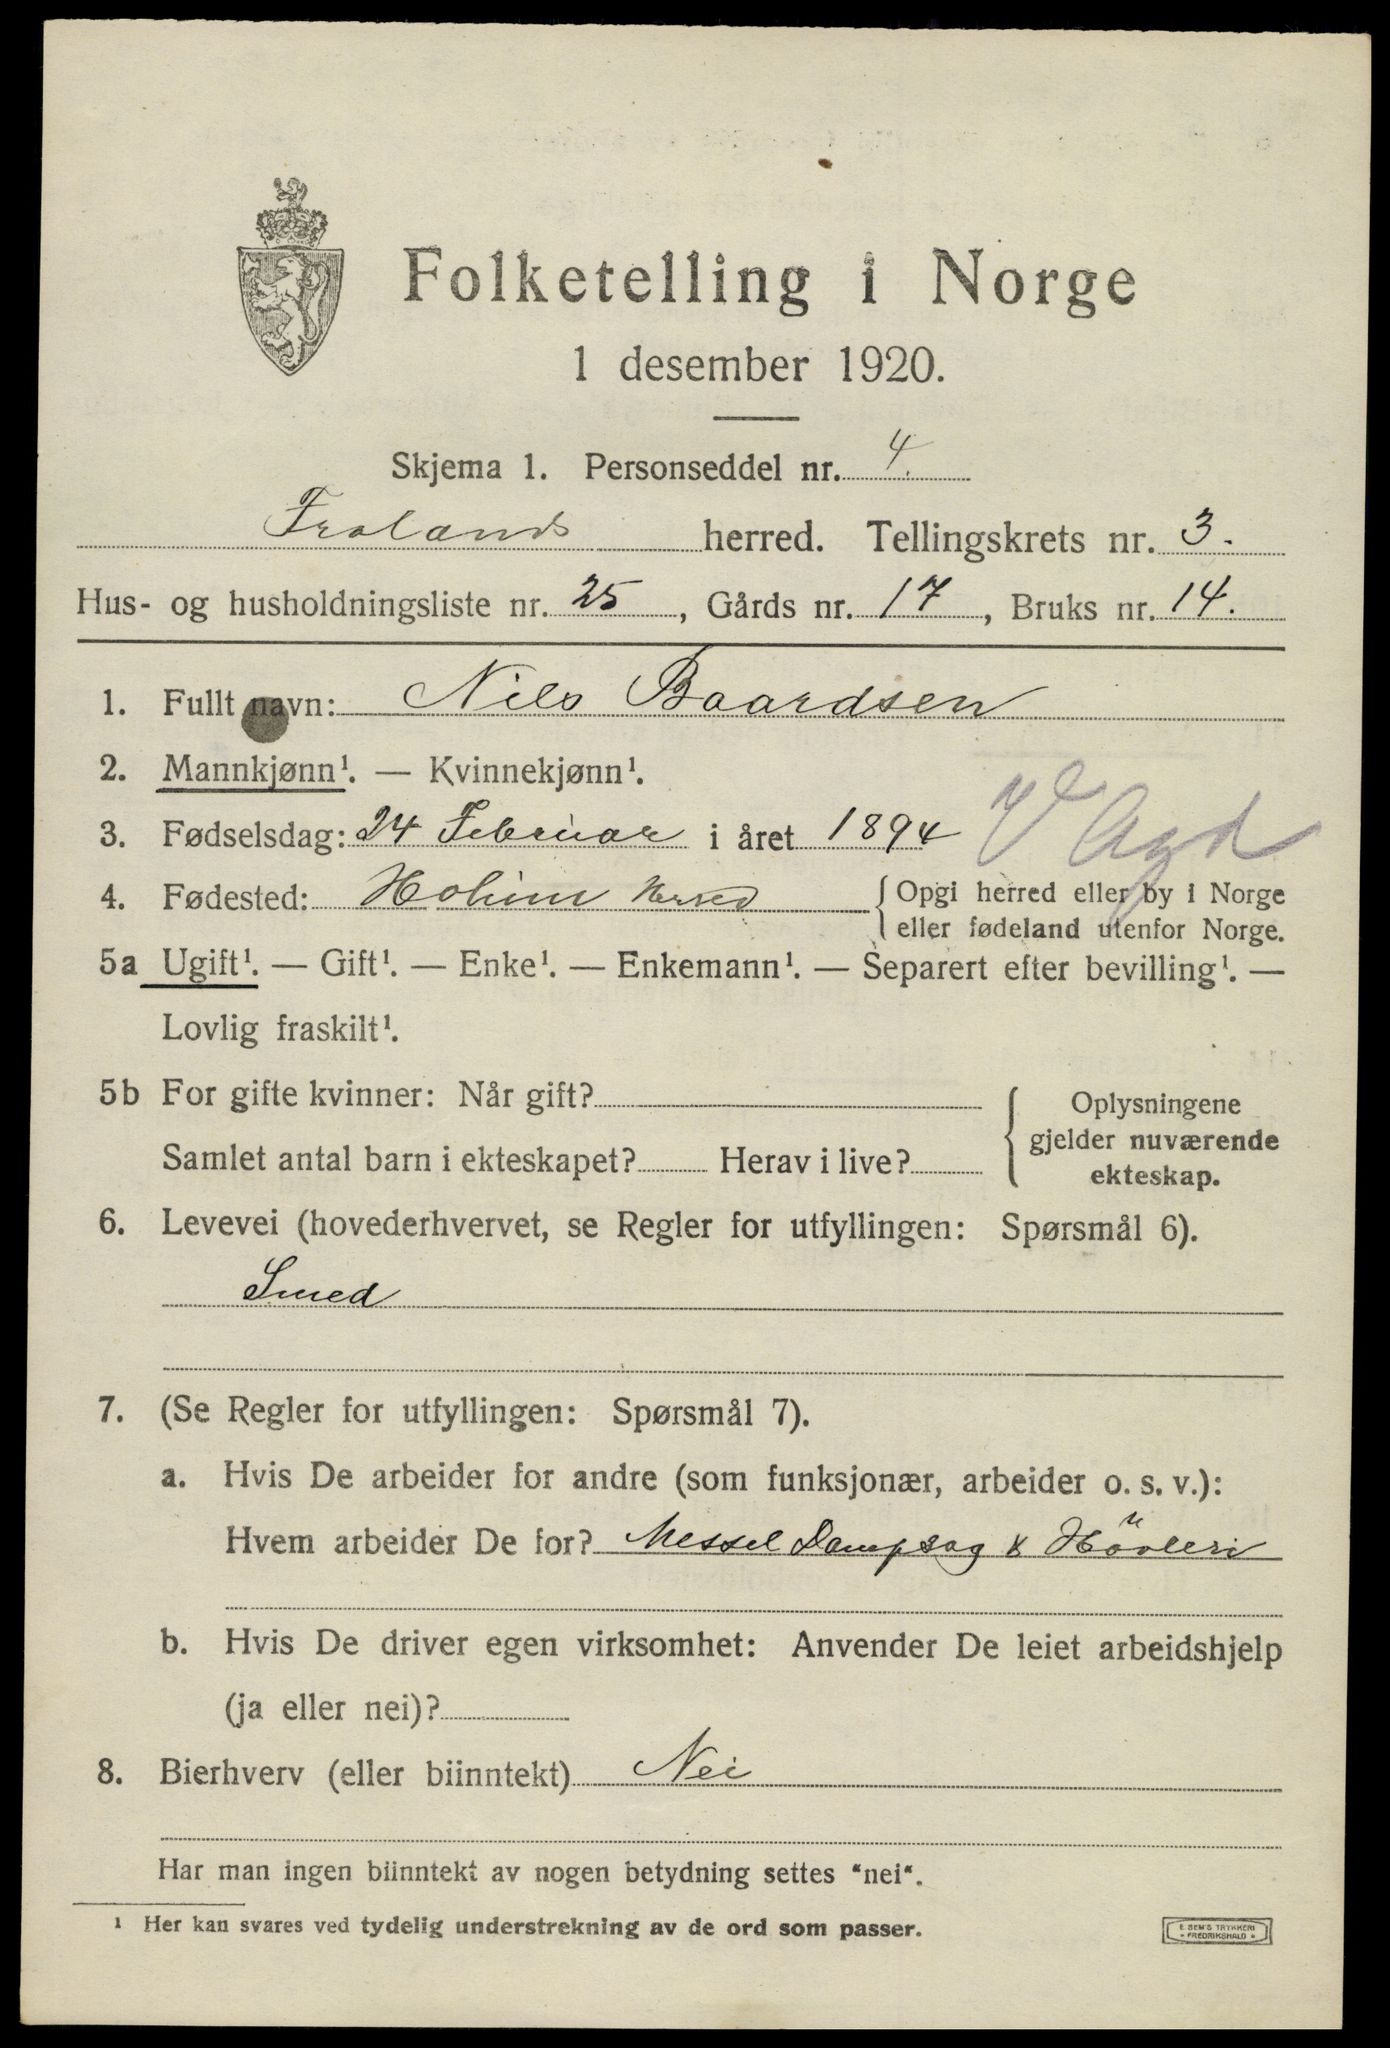 Folketelling i Norge
1 desember 1920.
Skjema 1. Personseddel nr. 4.
Frolands herred. Tellingskrets nr. 3.
Hus- og husholdningsliste nr. 25, Gårds nr. 17, Bruks nr. 14.
1. Fullt navn: Nils Baardsen
2. Mannkjønn¹. — Kvinnekjønn¹.
3. Fødselsdag: 24 Februar i året 1894
V Agd
4. Fødested: Holum Herred { Opgi herred eller by i Norge
eller fødeland utenfor Norge.
5a Ugift¹. — Gift¹. — Enke¹. — Enkemann¹. — Separert efter bevilling¹. —
Lovlig fraskilt¹.
5b For gifte kvinner: Når gift?
Samlet antal barn i ekteskapet? Herav i live?
Oplysningene
gjelder nuværende
ekteskap.
6. Levevei (hovederhvervet, se Regler for utfyllingen: Spørsmål 6).
Smed
7. (Se Regler for utfyllingen: Spørsmål 7).
a. Hvis De arbeider for andre (som funksjonær, arbeider o. s. v.):
Hvem arbeider De for? Messel Dampsag & Hövleri
b. Hvis De driver egen virksomhet: Anvender De leiet arbeidshjelp
(ja eller nei)?
8. Bierhverv (eller biinntekt) Nei
Har man ingen biinntekt av nogen betydning settes "nei".
¹ Her kan svares ved tydelig understrekning av de ord som passer.
E. SEM'S TRYKKERI
* FREDRIKSHALD *